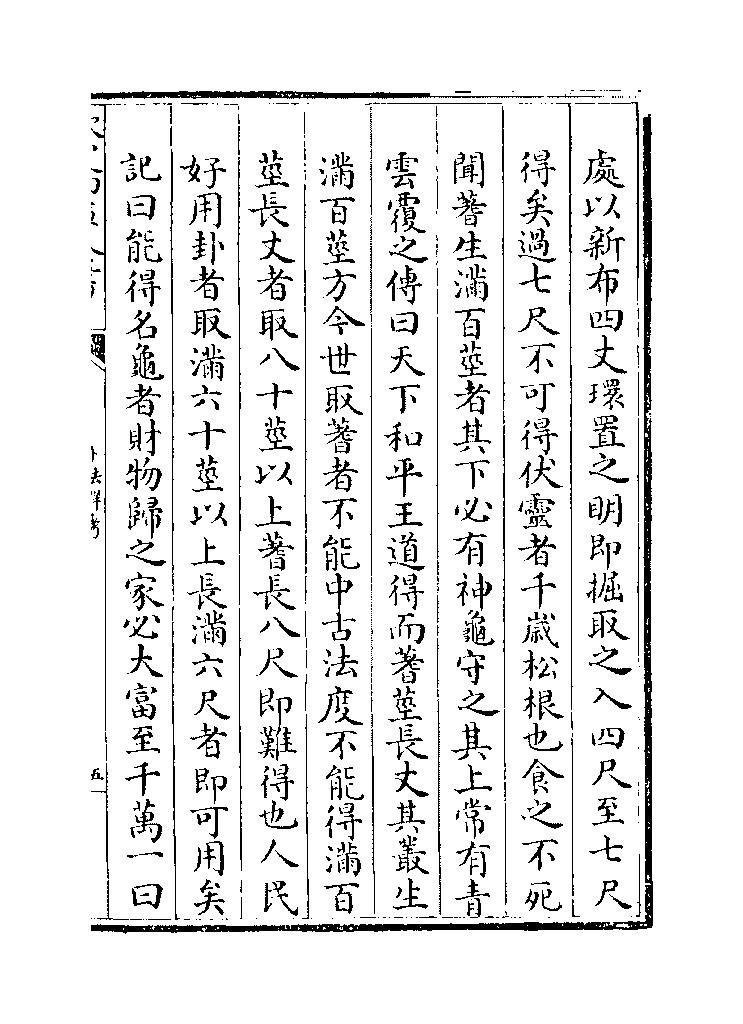 處以新布四丈環置之明即掘取之入四尺至七尺
得矣過七尺不可得伏靈者千歲松根也食之不死
聞蓍生滿百莖者其下必有神龜守之其上常有青
雲覆之傳曰天下和平王道得而蓍莖長丈其叢生
滿百莖方今世取蓍者不能中古法度不能得滿百
莖長丈者取八十莖以上蓍長八尺即難得也人民
好用卦者取滿六十莖以上長滿六尺者即可用矣
記曰能得名龜者財物歸之家必大富至千萬一曰
卜法詳考
五